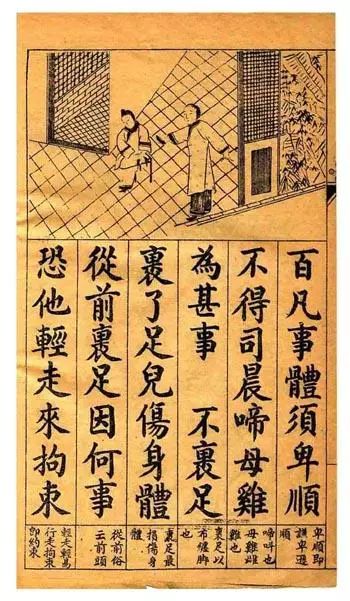 百凡事體須卑順
不得司晨啼母雞
為甚事 不裹足
裹了足兒傷身體
從前裹足因何事
恐他輕走來拘束
卑順即
謙卑遜
順
啼叫也
母雞雌
雞也
裹足以
布纏脚
也
裹足最
損傷身
體
從前俗
云前頭
輕走輕易
行走拘束
即約束